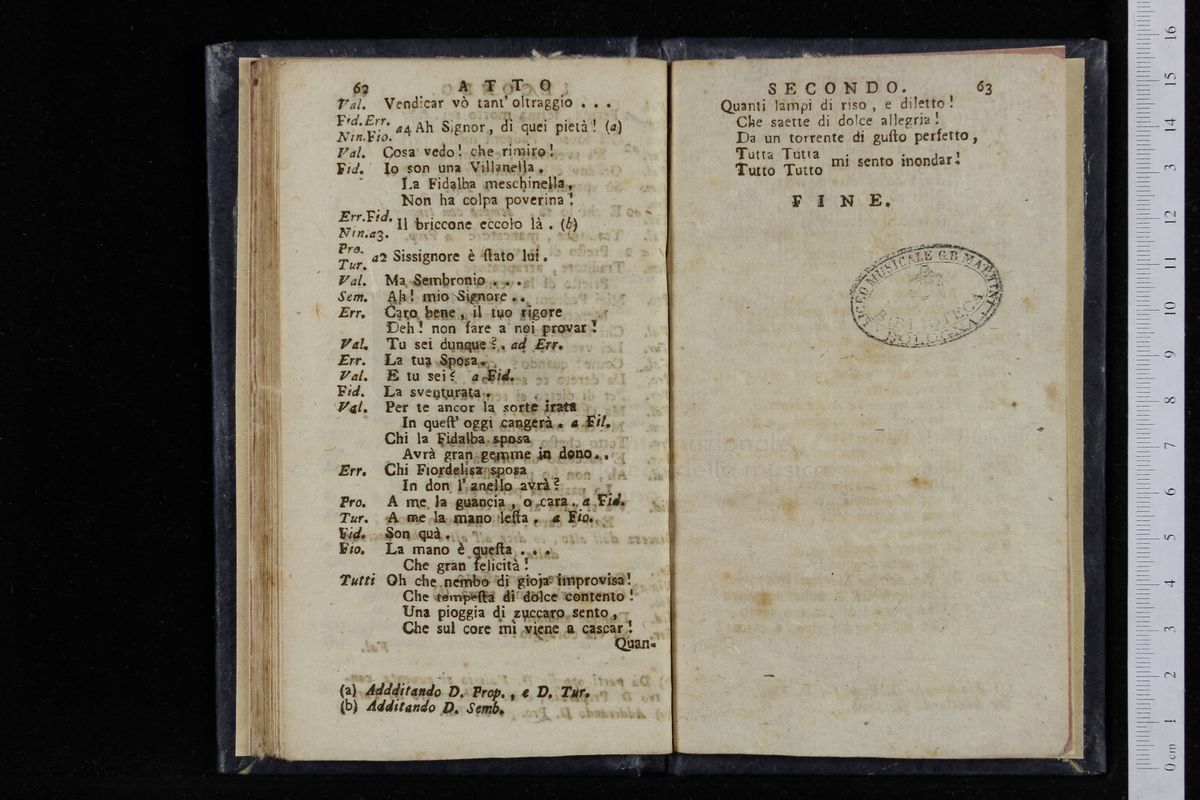 62 ATTO
Val. Vendicar vò tant' oltraggio . . .
Fid. Err.
Nin. Fio. a4 Ah Signor, di quei pietà! (a)
Val. Cosa vedo! che rimiro!
Fid. Io son una Villanella,
La Fidalba meschinella,
Non ha colpa poverina!
Err. Fid.
Nin. a3. Il briccone eccolo là. (b)
Pro.
Tur. a2 Sissignore è ſtato lui.
Val. Ma Sembronio . . .
Sem. Ah! mio Signore . .
Err. Caro bene, il tuo rigore
Deh! non fare a noi provar!
Val. Tu sei dunque?. ad Err.
Err. La tua Sposa.
Val. E tu sei? a Fid.
Fid. La sventurata.
Val. Per te ancor la sorte irata
In queſt' oggi cangerà. a Fil.
Chi la Fidalba sposa
Avrà gran gemme in dono..
Err. Chi Fiordelisa sposa
In don l' anello avrà?
Pro. A me la guancia, o cara. a Fid.
Tur. A me la mano leſta. a Fio.
Fid. Son quà.
Fio. La mano è queſta . . .
Che gran felicità!
Tutti Oh che nembo di gioja improvisa!
Che tempeſta di dolce contento!
Una pioggia di zuccaro sento,
Che sul core mi viene a cascar!
Quan-
(a) Addditando D. Prop., e D. Tur.
(b) Additando D. Semb.
SECONDO. 63
Quanti lampi di riso, e diletto!
Che saette di dolce allegria!
Da un torrente di guſto perfetto,
Tutta Tutta
Tutto Tutto mi sento inondar!
FINE.
LICEO MUSICALE G.B. MARTINI
BIBLIOTECA
BOLOGNA